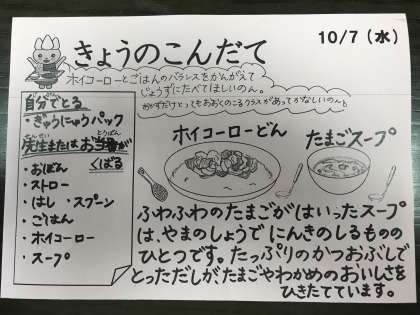 きょうのこんだて
10/7（水）
ホイコーローとごはんのバランスをかんがえて
じょうずにたべてほしいのん。
おかずだけとってもおおくのこるクラスがあってかなしいのん
自分でとる
・ぎゅうにゅうパック
先生またはお当番が
くばる
・おぼん
・ストロー
・はし スプーン
・ごはん
・ホイコーロー
・スープ
ホイコーローどん
たまごスープ
ふわふわのたまごがはいったスープ
は、やまのしょうで にんきのしるものの
ひとつです。たっぷりのかつおぶしで
とっただしが、たまごやわかめのおいしさを
ひきたてています。